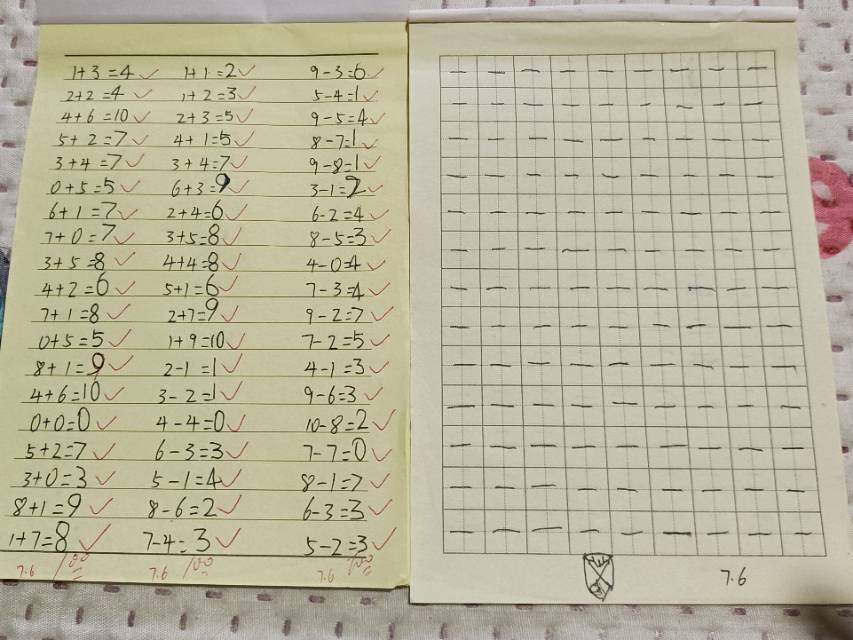 1+3=4 1+1=2 9-3=6
2+2=4 1+2=3 5-4=1
4+6=10 2+3=5 9-5=4
5+2=7 4+1=5 8-7=1
3+4=7 3+4=7 9-8=1
0+5=5 6+3=9 3-1=2
6+1=7 2+4=6 6-2=4
7+0=7 3+5=8 8-5=3
3+5=8 4+4=8 4-0=4
4+2=6 5+1=6 7-3=4
7+1=8 2+7=9 9-2=7
0+5=5 1+9=10 7-2=5
8+1=9 2-1=1 4-1=3
4+6=10 3-2=1 9-6=3
0+0=0 4-4=0 10-8=2
5+2=7 6-3=3 7-7=0
3+0=3 5-1=4 8-1=7
8+1=9 8-6=2 6-3=3
1+7=8 7-4=3 5-2=3
7.6 100 7.6 100 7.6 100
一 一 一 一 一 一 一 一 一
一 一 一 一 一 一 一 一 一
一 一 一 一 一 一 一 一 一
一 一 一 一 一 一 一 一 一
一 一 一 一 一 一 一 一 一
一 一 一 一 一 一 一 一 一
一 一 一 一 一 一 一 一 一
一 一 一 一 一 一 一 一 一
一 一 一 一 一 一 一 一 一
一 一 一 一 一 一 一 一 一
一 一 一 一 一 一 一 一 一
一 一 一 一 一 一 一 一 一
一 一 一 一 一 一 一 一 一
7.6